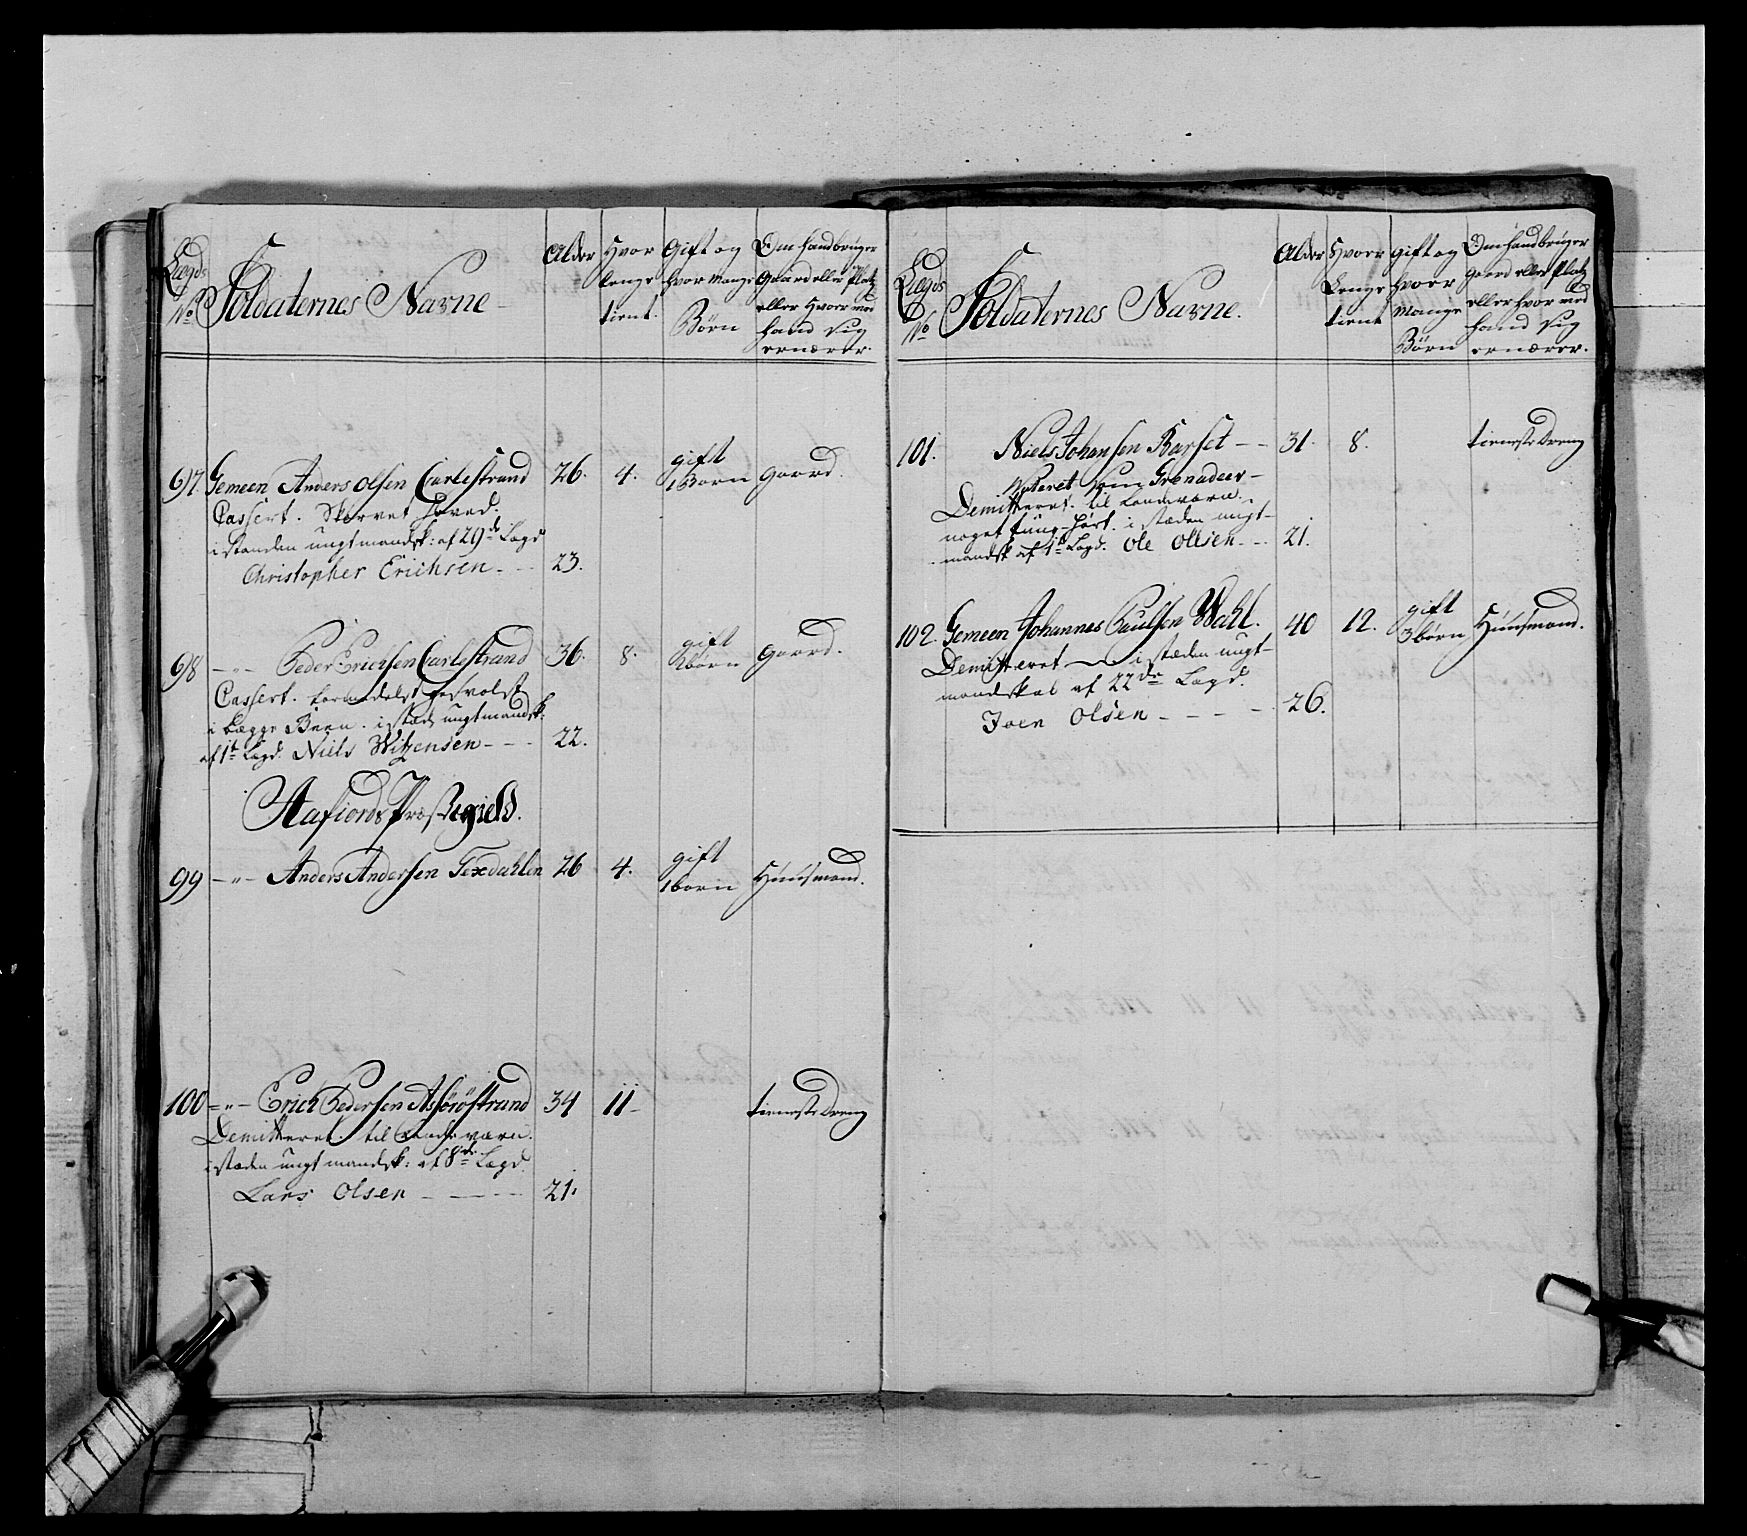 Lægds No Soldaternes Navne
Alder
Hvor lenge tient.
Gift og hvor mange Børn
Om hand bruger Gaard eller Platz eller Hvor med hand sig ernærer.
97. Gemeen Anders Olsen Carlestrand 26. 4. gift 1 Born gaard.
Cassert. Skurvet Hoved.
i stæden ungt mandsk: af 29de Lægd
Christopher Erichsen - - 23.
98 -"- Peder Erichsen Carlestrand 36. 8. gift børn gaard.
Cassert. formedelst
i begge Been. i stæd ungt mandsk:
af 1te Lægd. Niels Witzensen - - - 22.
Aafiords Præstegield.
99 -"- Anders Andersen Texdahlen 26 4. gift 1 born Huusmand.
100 -"- Erich Pedersen 34 11 tieneste Dreng
Demitteret til Landeværn.
i stæden ungt mandsk: af 8de Lægd.
Lars Olsen - - - - 21.
Lægds No Soldaternes Navne.
Alder
Hvor Lenge tient
gift og hvor mange Børn
Om hand bruger gaard eller Platz eller hvor med hand sig ernærer.
101. Niels Johansen Barset - - 31. 8. tieneste Dreng
Noteret som Grenadeer -
Demitteret til Landeværn.
noget tung-Hørt. i stæden ungt-
mandsk af 1te Lægd. Ole Olsen - - 21.
102. Gemeen Johannes Paulsen Wahl. 40 12. gift 3 børn Huusmand.
Demitteret i stæden ungt-
mandskab af 22de Lægd.
Joen Olsen - - - - 26.